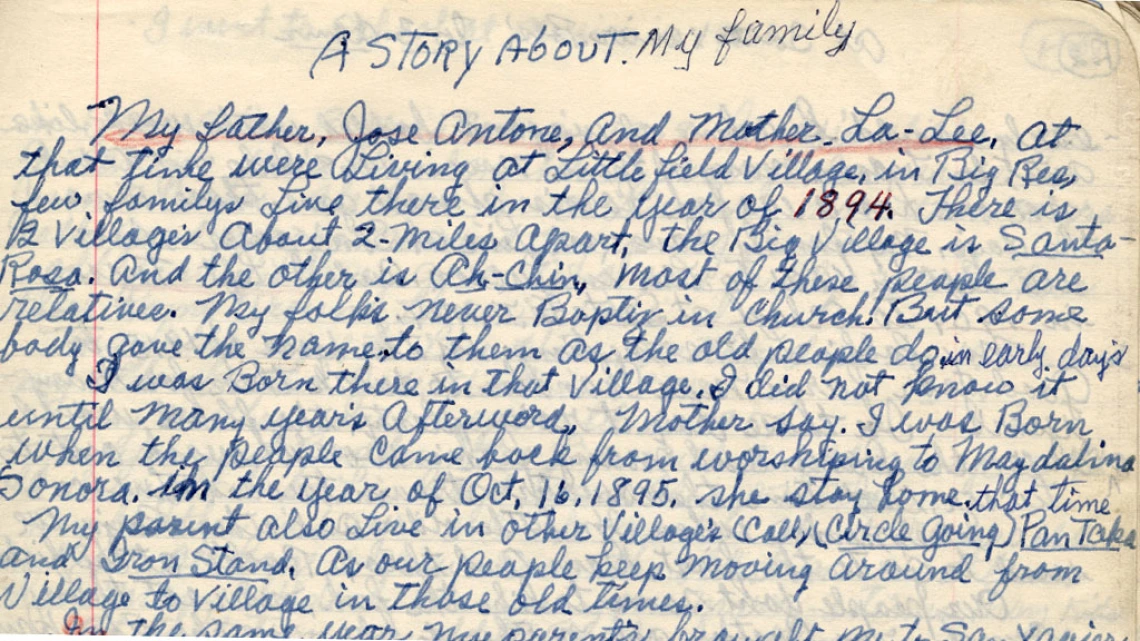 A STORY ABOUT. My family
My father, Jose Antone, And Mother. La-Lee, at
that time were Living at Little field Village, in Big Res,
few familys Live there in the year of 1894. There is
12 Village's About 2-Miles apart, the Big Village is Santa-
Rosa. And the other is Ah-Chin, Most of these people are
relatives. My folk's never Baptiz in Church! But some
body gave the Name to them as the old people do in early day's
I was Born there in that Village. I did not know it
until Many year's Afterword, Mother say. I was Born
when the people Came back from worshiping to Magdalina
Sonora. in the year of Oct, 16, 1895. she stay home that time
My parent also Live in other Village's (Call, (Circle Going) Pan Tak
and Iron Stand. As our people keep Moving around from
Village to Village in those old times.
In the same year My parent's brought My to San Xavier